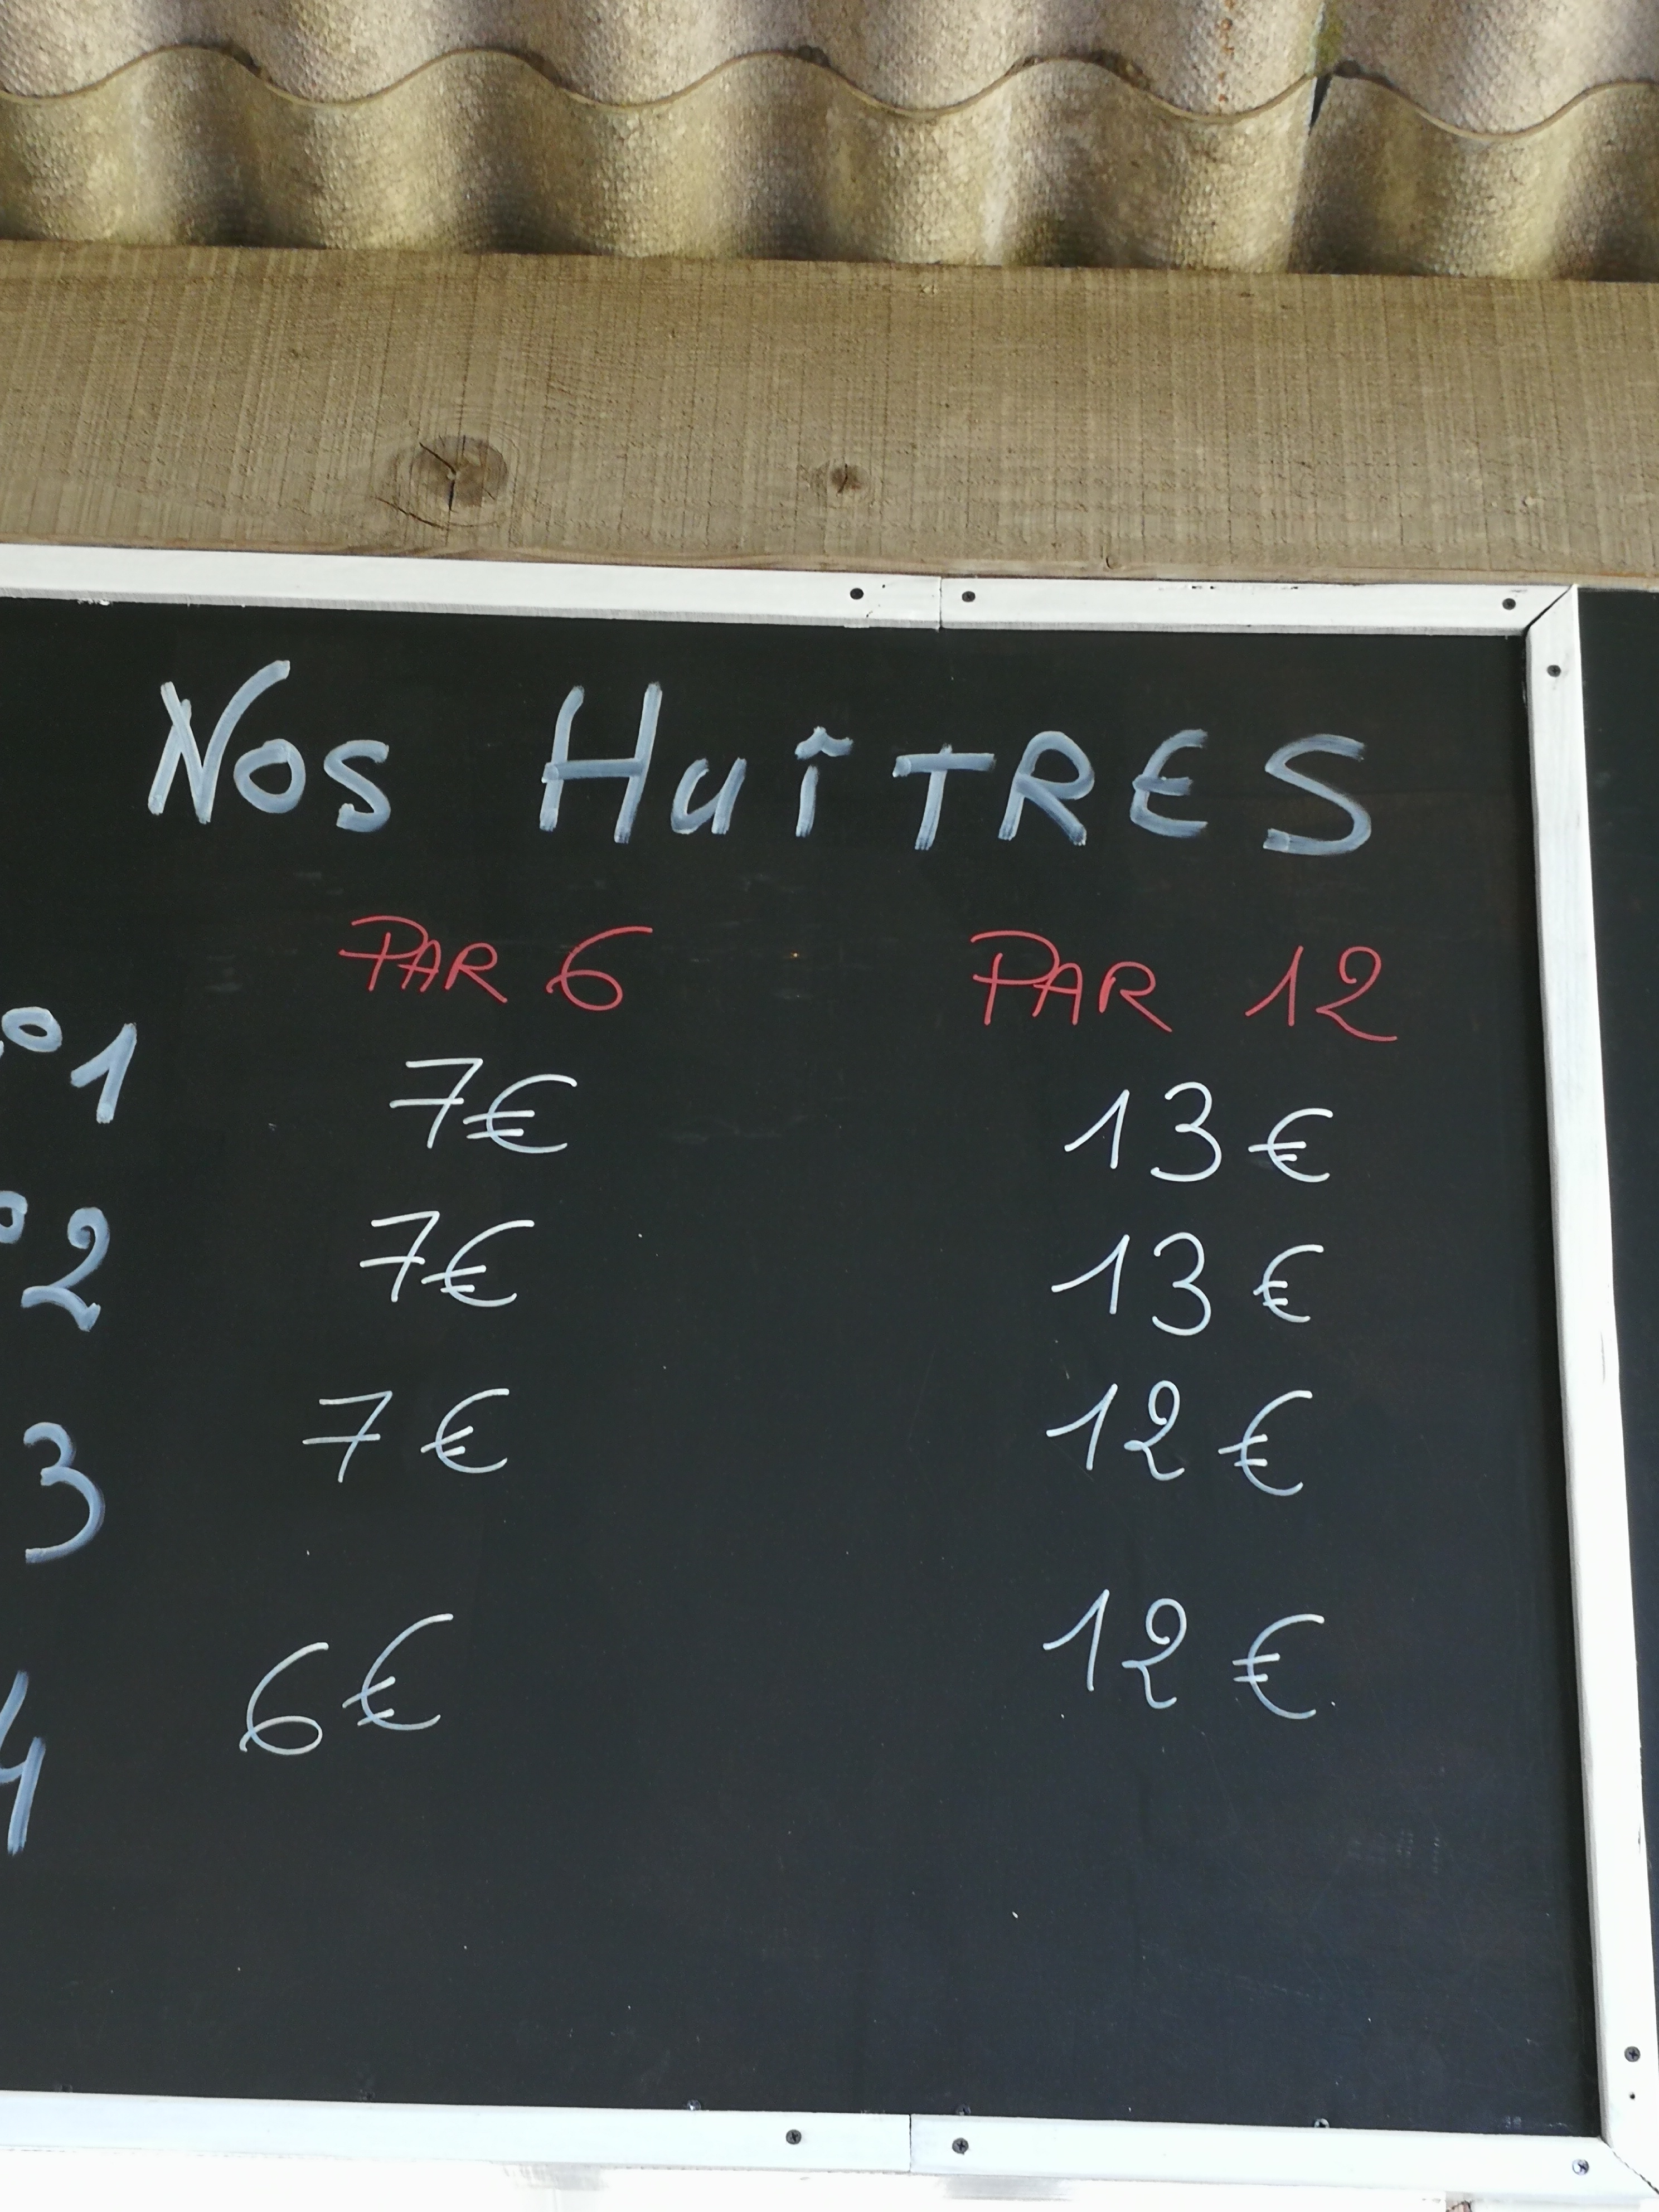 Nos HuîTRES
PAR 6 PAR 12
°1 7€ 13€
°2 7€ 13€
3 7€ 12€
4 6€ 12€